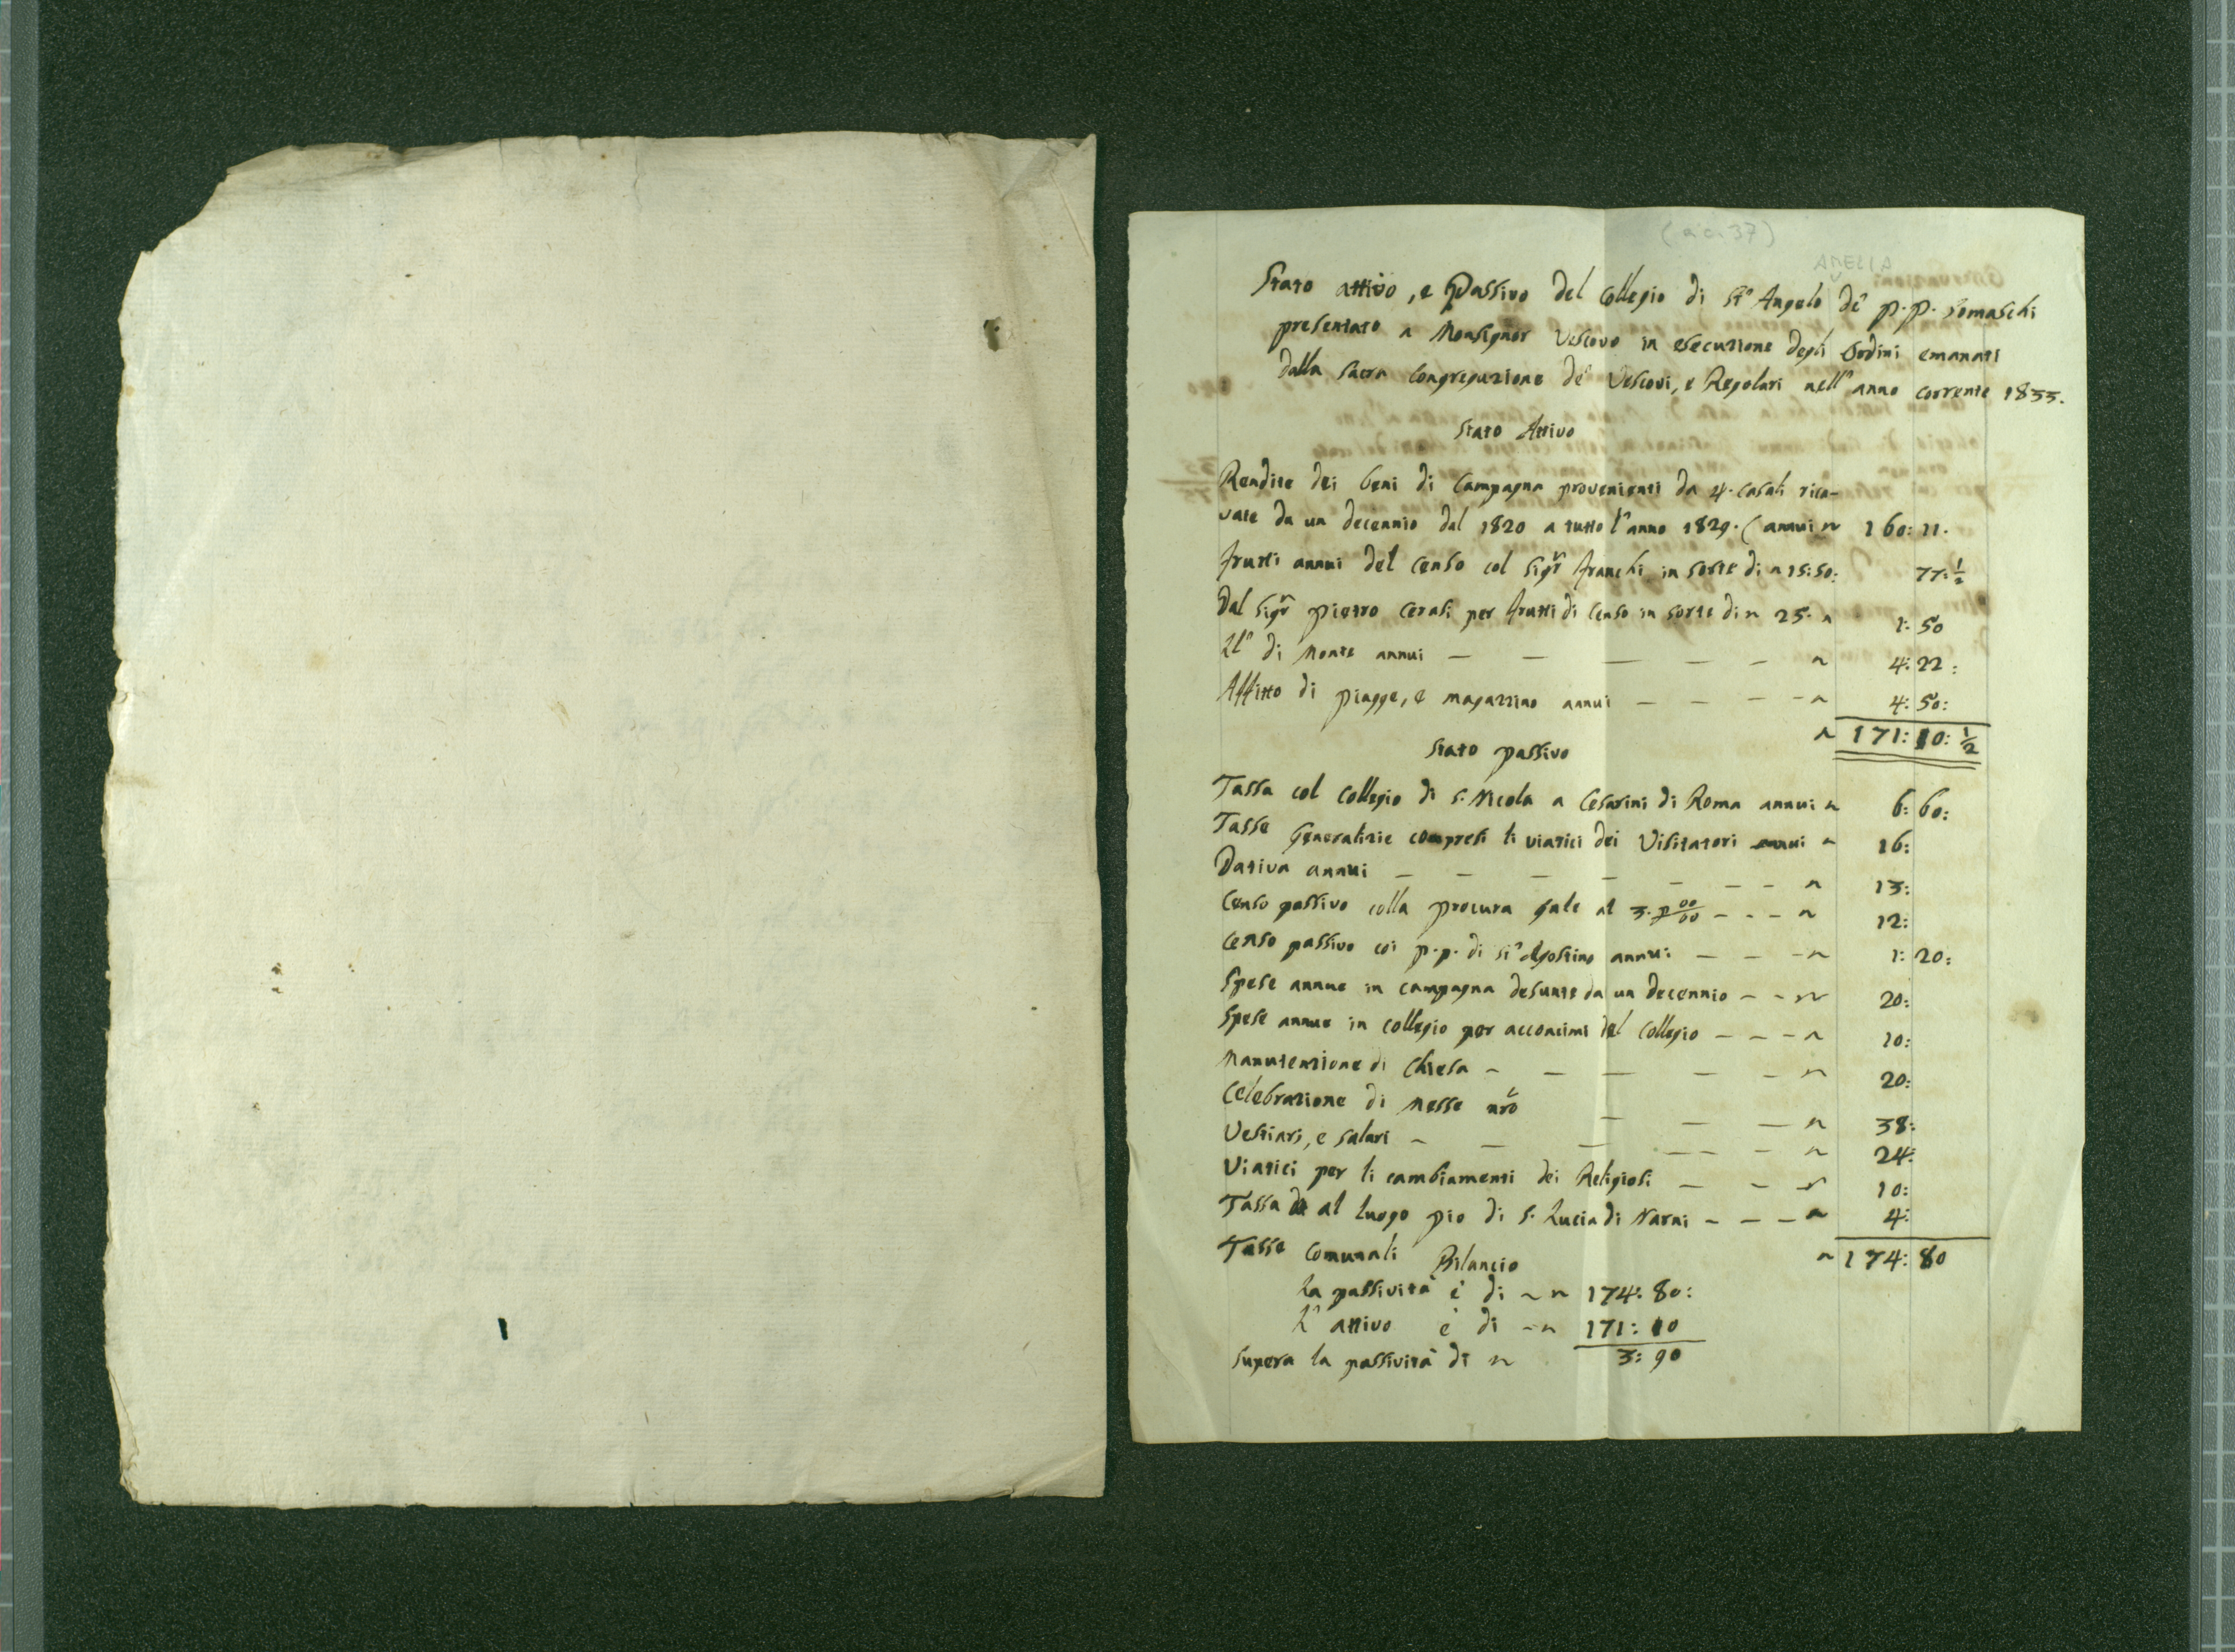 (a c. 37)
AMELIA
Stato attivo, e Passivo del Collegio di St'Angelo de' P.P. Somaschi
presentato a Monsignor Vescovo in esecuzione degli Ordini emanati
dalla Sacra Congregazione de' Vescovi, e Regolari nell'anno corrente 1833.
Stato Attivo
Rendite dei beni di Campagna provenienti da 4. casali rica-
vate da un decennio dal 1820 a tutto l'anno 1829. (annui ~ 160: 11.
frutti annui del Censo col Sigr franchi in sorte di ~ 15:50: 77: 1/2
Dal Sigr Pietro Cerasi per frutti di Censo in sorte di ~ 25. ~ 1: 50
di Monte annui — — — — — ~ 4: 22:
Affitto di piagge, e magazzino annui — — — — ~ 4: 50:
~ 171: 10: 1/2
Stato passivo
Tassa col Collegio di S. Nicola a Cesarini di Roma annui ~ 6: 60:
Tasse Generalizie compresi li viatici dei Visitatori annui ~ 16:
Dativa annui — — — — — — — ~ 13:
Censo passivo colla procura gale al 3. p 00/00 — — — ~ 12:
Censo passivo coi P.P. di St'Agostino annui — — — ~ 1: 20:
Spese annue in campagna desunte da un decennio — — ~ 20:
Spese annue in collegio per acconcimi del Collegio — — — ~ 10:
Manutenzione di Chiesa — — — — — ~ 20:
Celebrazione di Messe nro — — — ~ 38:
Vestiari, e salari — — — — — — ~ 24:
Viatici per li cambiamenti dei Religiosi — — ~ 10:
Tassa al luogo pio di S. Lucia di Narni — — — ~ 4:
Tasse Comunali Bilancio ~ 174: 80
La passività è di ~ ~ 174: 80:
L'attivo è di — ~ 171: 10
Supera la passività di ~ 3: 90